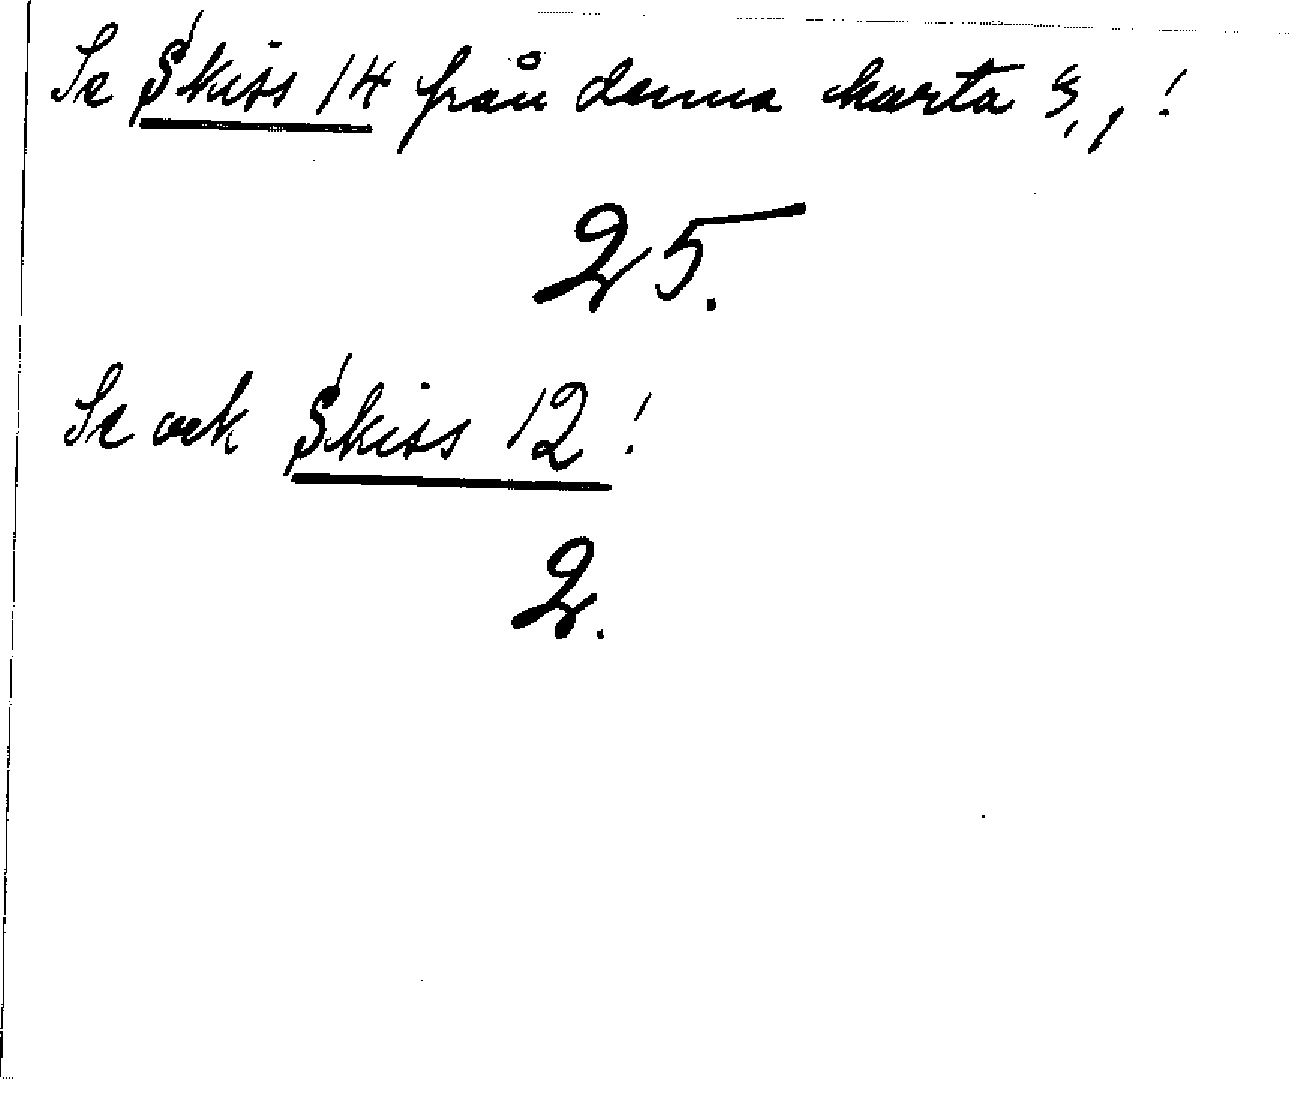 Se Skiss 14 från denna karta !
25.
Se ock Skiss 12 !
2.